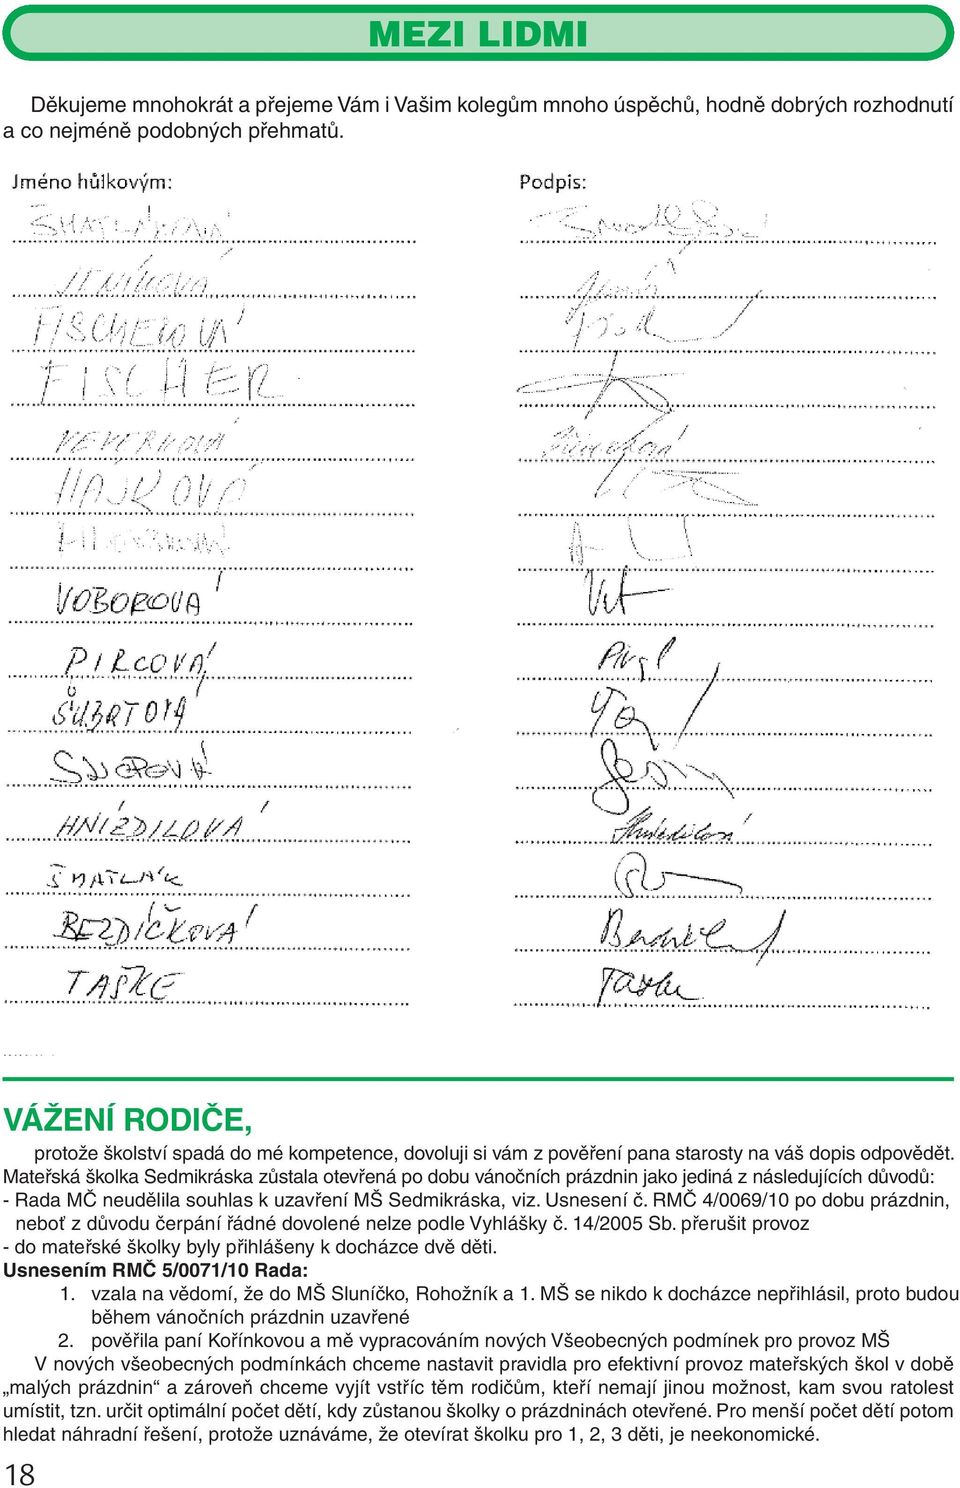 MEZI LIDMI
Děkujeme mnohokrát a přejeme Vám i Vašim kolegům mnoho úspěchů, hodně dobrých rozhodnutí
a co nejméně podobných přehmatů.
Jméno hůlkovým: Podpis:
JENÍKOVÁ
FISCHEROVÁ
FISCHER
VEVERKOVÁ
HÁJKOVÁ
VOBOROVÁ
PIRCOVÁ
ŠUBRTOVÁ
HNÍZDILOVÁ Hnízdilová
ŠMATLÁK
BEZDÍČKOVÁ
TAŠKE
VÁŽENÍ RODIČE,
protože školství spadá do mé kompetence, dovoluji si vám z pověření pana starosty na váš dopis odpovědět.
Mateřská školka Sedmikráska zůstala otevřená po dobu vánočních prázdnin jako jediná z následujících důvodů:
- Rada MČ neudělila souhlas k uzavření MŠ Sedmikráska, viz. Usnesení č. RMČ 4/0069/10 po dobu prázdnin,
neboť z důvodu čerpání řádné dovolené nelze podle Vyhlášky č. 14/2005 Sb. přerušit provoz
- do mateřské školky byly přihlášeny k docházce dvě děti.
Usnesením RMČ 5/0071/10 Rada:
1. vzala na vědomí, že do MŠ Sluníčko, Rohožník a 1. MŠ se nikdo k docházce nepřihlásil, proto budou
během vánočních prázdnin uzavřené
2. pověřila paní Kořínkovou a mě vypracováním nových Všeobecných podmínek pro provoz MŠ
V nových všeobecných podmínkách chceme nastavit pravidla pro efektivní provoz mateřských škol v době
„malých prázdnin“ a zároveň chceme vyjít vstříc těm rodičům, kteří nemají jinou možnost, kam svou ratolest
umístit, tzn. určit optimální počet dětí, kdy zůstanou školky o prázdninách otevřené. Pro menší počet dětí potom
hledat náhradní řešení, protože uznáváme, že otevírat školku pro 1, 2, 3 děti, je neekonomické.
18